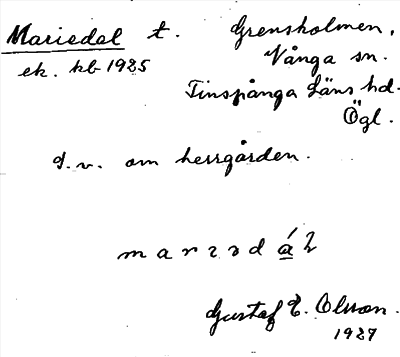 Mariedal t. Grensholmen,
ek. kb 1925 Vånga sn.
Finspånga Läns hd.
Ögl.
S.v. om herrgården.
Gustaf E. Olsson.
1927